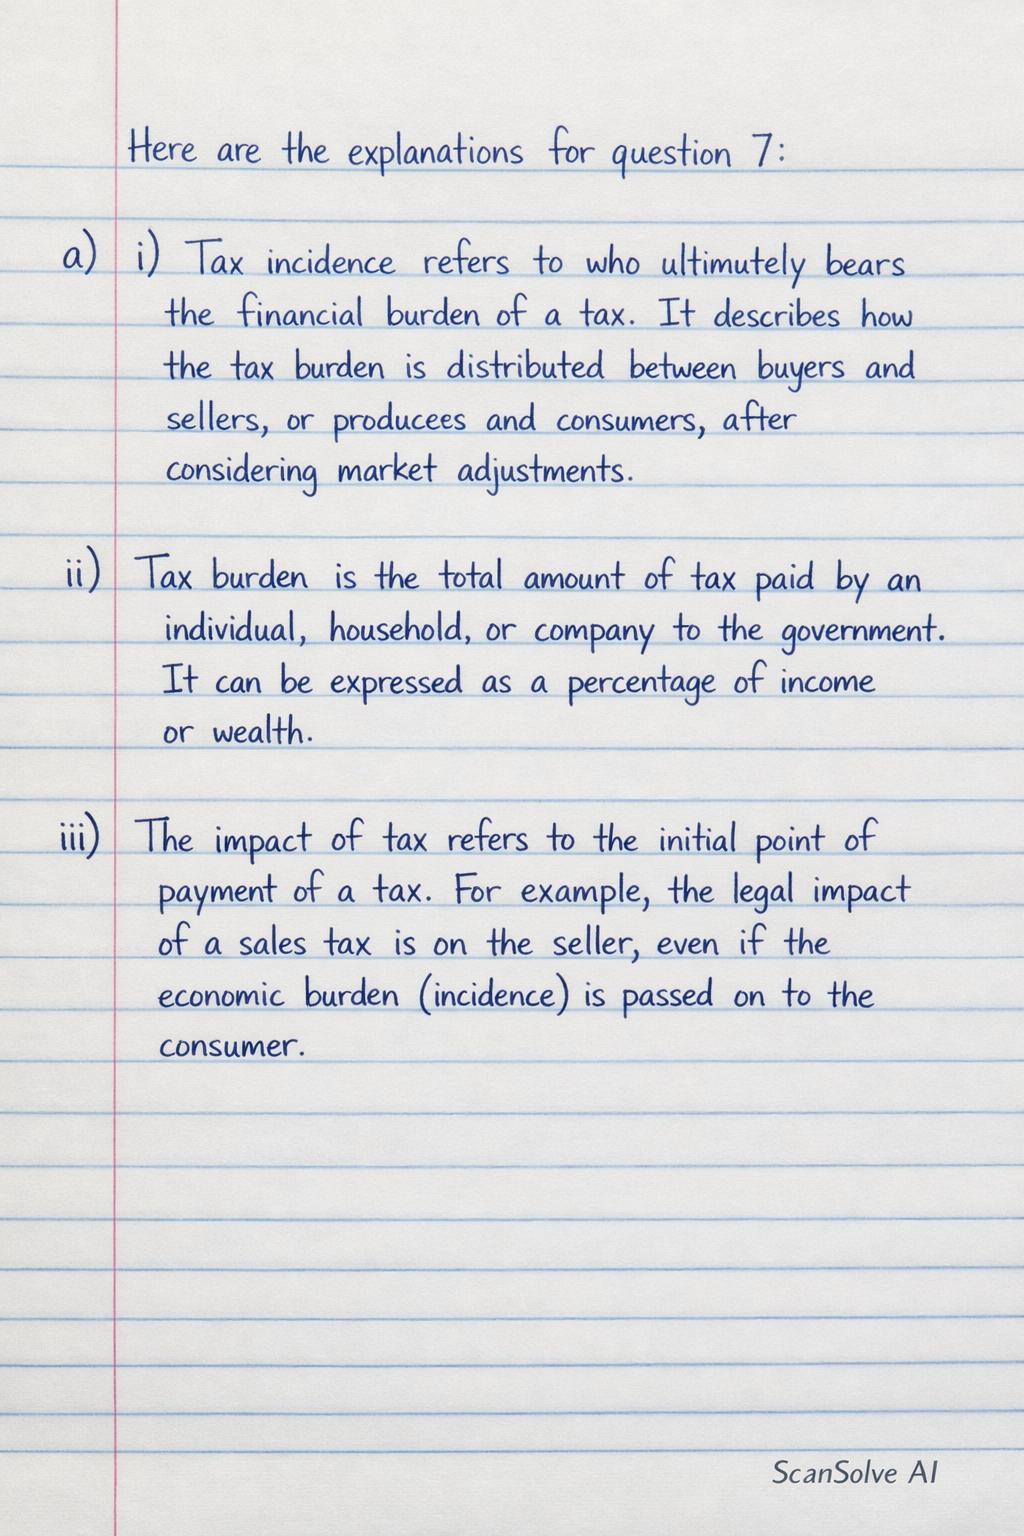 Here are the explanations for question 7:
a) i) Tax incidence refers to who ultimutely bears
the financial burden of a tax. It describes how
the tax burden is distributed between buyers and
sellers, or producees and consumers, after
considering market adjustments.
ii) Tax burden is the total amount of tax paid by an
individual, household, or company to the government.
It can be expressed as a percentage of income
or wealth.
iii) The impact of tax refers to the initial point of
payment of a tax. For example, the legal impact
of a sales tax is on the seller, even if the
economic burden (incidence) is passed on to the
consumer.
ScanSolve AI